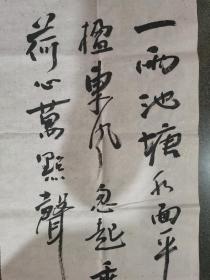 一雨池塘水面平
楹東風忽起垂
荷心萬點聲